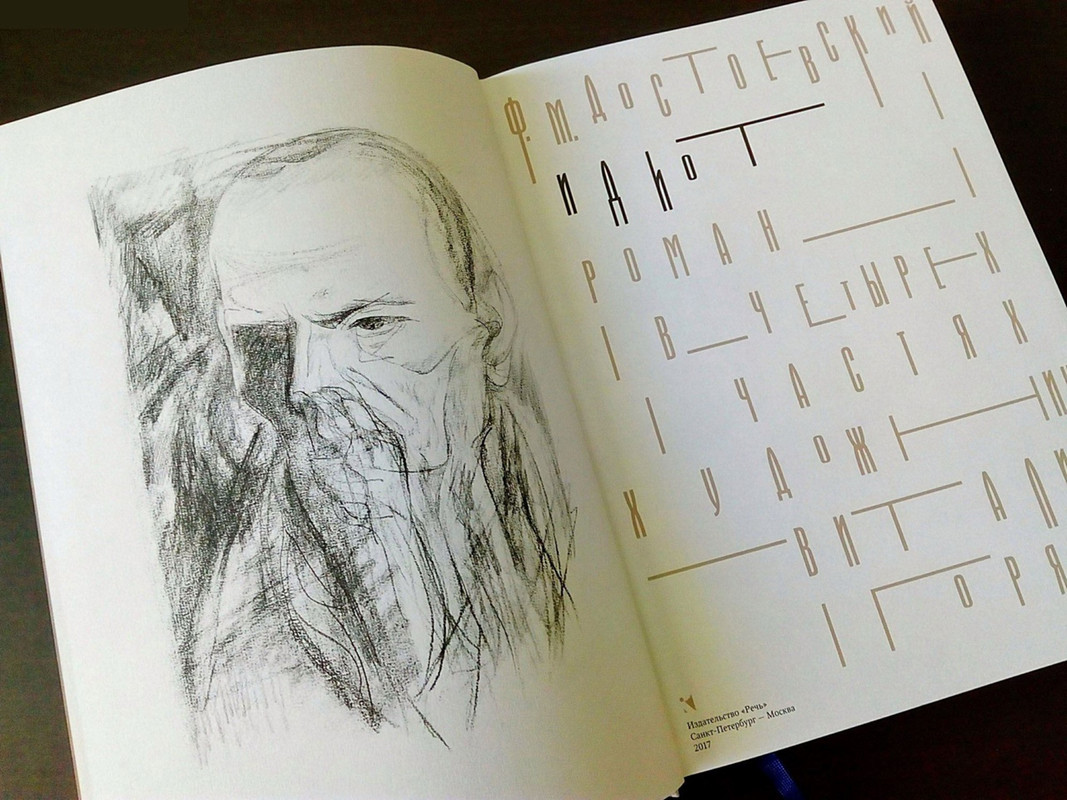 Ф. М. ДОСТОЕВСКИЙ
ИДИОТ
РОМАН
В ЧЕТЫРЕХ
ЧАСТЯХ
ХУДОЖНИ
ВИТАЛИ
ГОРЯ
Издательство «Речь»
Санкт-Петербург — Москва
2017